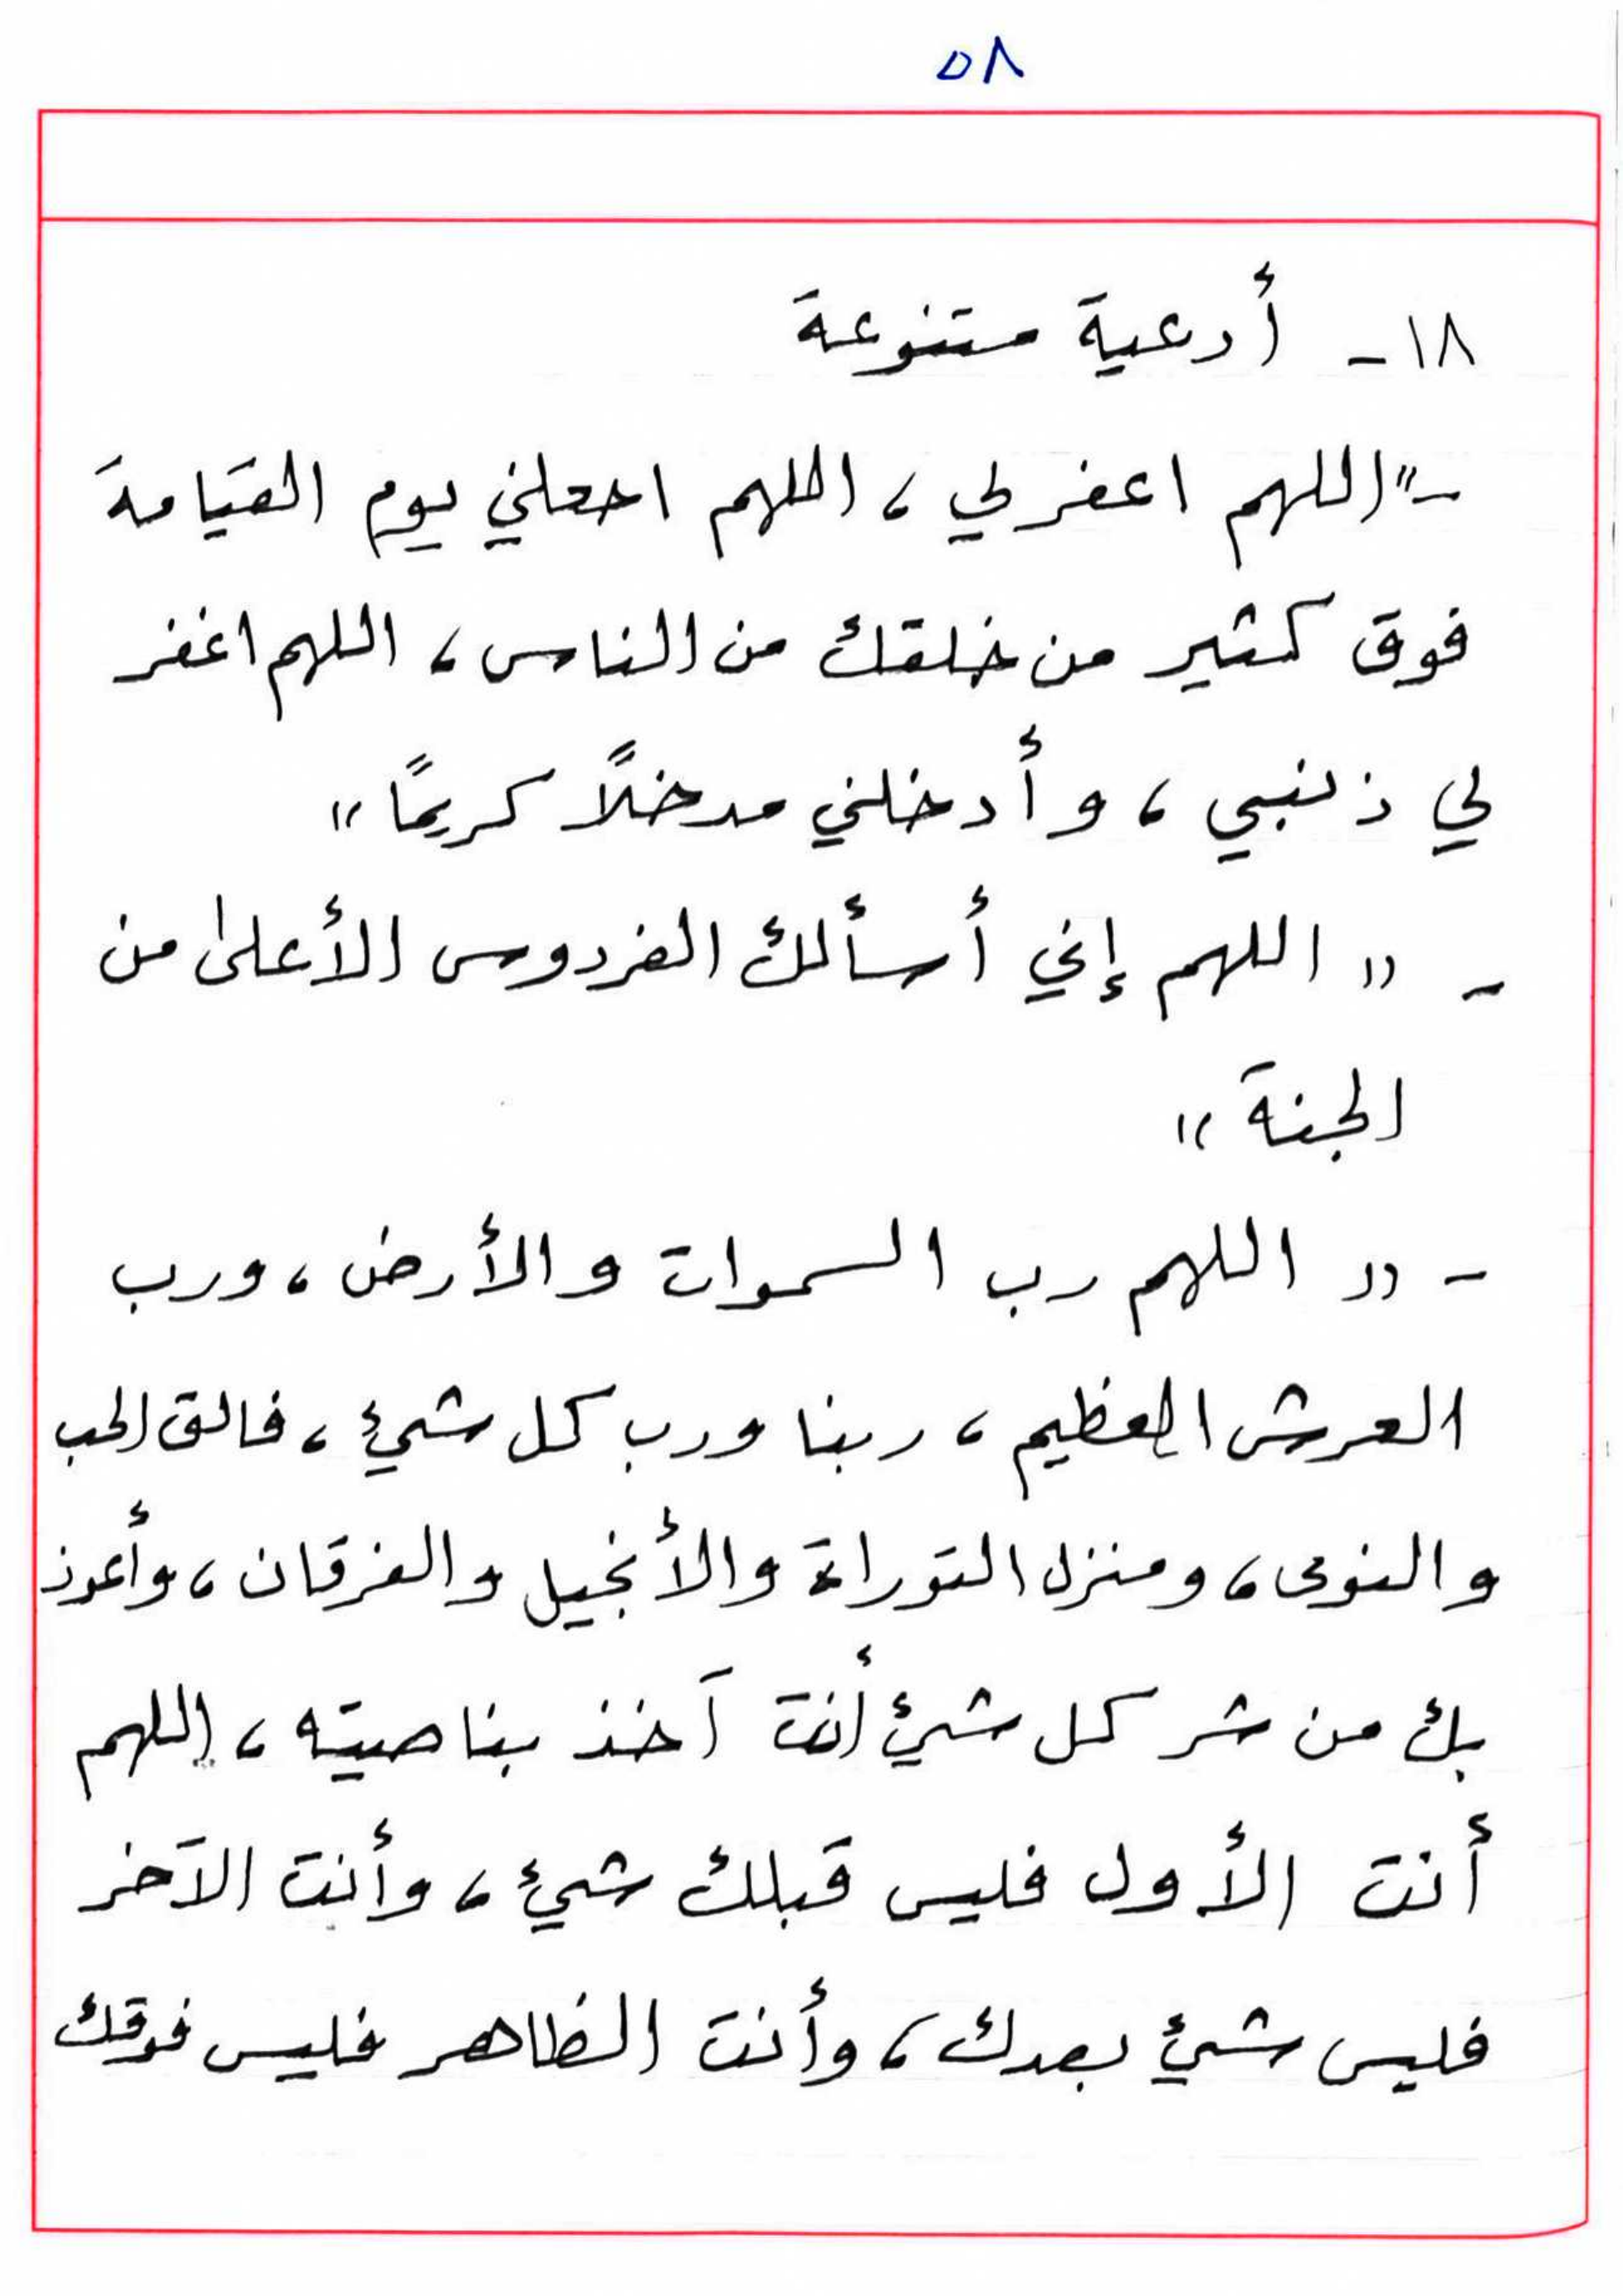 ٥٨
١٨- أدعية متنوعة
- "اللهم اغفر لي، اللهم اجعلني يوم القيامة
فوق كثير من خلقك من الناس، اللهم اغفر
لي ذنبي، وأدخلني مدخلًا كريمًا"
- "اللهم إني أسألك الفردوس الأعلى من
الجنة"
- "اللهم رب السموات والأرض، ورب
العرش العظيم، ربنا ورب كل شيئ، فالق الحب
والنوى، ومنزل التوراة والأنجيل والفرقان، وأعوذ
بك من شر كل شيئ أنت آخذ بناصيته، اللهم
أنت الأول فليس قبلك شيئ، وأنت الآخر
فليس شيئ بعدك، وأنت الظاهر فليس فوقك